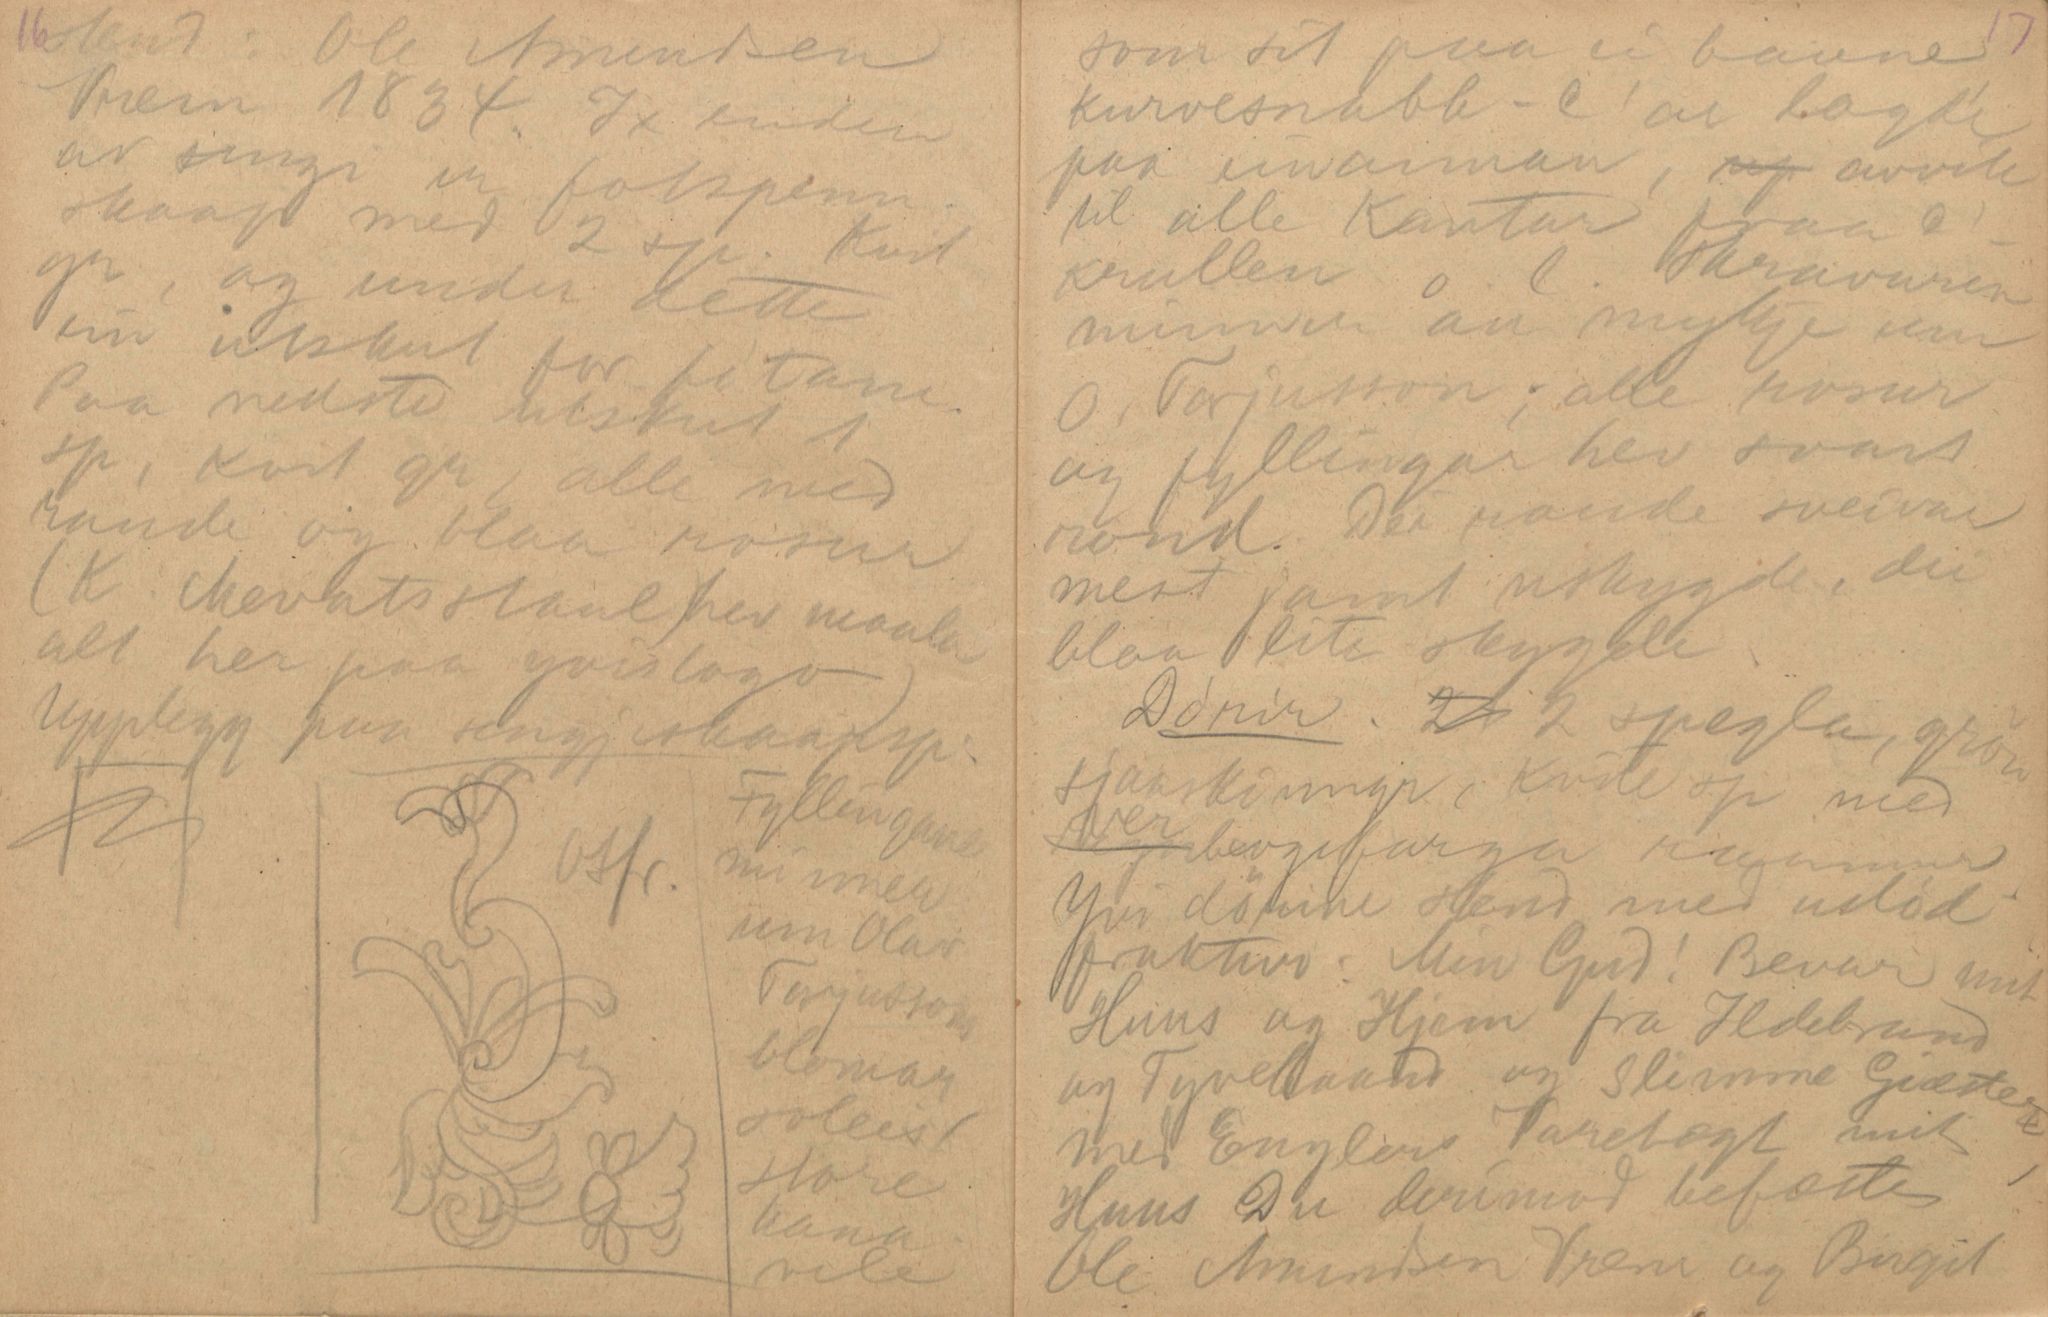 16
stend: Ole Amundsen
Vrem 1834. I enden
av sengi er fotspenn-
skaap med 2 sp. Kvit
gr, og under dette
ein utskut for fitane.
Paa nedste utskut 1
sp, kvit gr, alle med
raude og blaa rosur
(K. Mevatsstaul) hev maala
alt her paa yvislago)
Upplegg paa sengjeskaapsp.
Otfr.
Fyllingane
minner
um Olav
Torjussons
blomar
soleis
store
kana-
vele
17
som sit paa ei baane
kurvesnabb - C' ar lagde
paa einannan, avvik
til alle Kantar fraa C'-
krullen o. l. Skravuren
minner au mykje um
O. Torjusson; alle rosur
og fyllingar hev svart
rond. Dei raude sveivar
mest jamt uskygde, dei
blaa lite skygde.
Dörir. 2 spegla, grön
sjaaskinngr, kvite sp med
raamur
Yvi dörine stend med udöd
fraktur: Min Gud! Bevar mit
Huus og Hjem fra Ildebrand
og Tyvehaand og slimme Giæster,
med Englers Varetægt mit
Huus Du derimod befæste
Ole Amundsen Vrem og Birgit